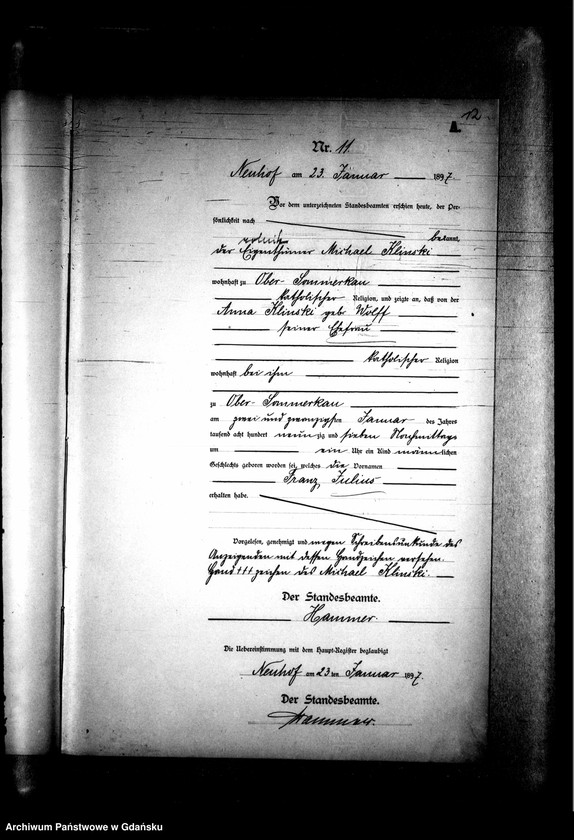 12
A.
Nr. 11.
Neuhof am 23. Januar 1897.
Vor dem unterzeichneten Standesbeamten erschien heute, der Per-
sönlichkeit nach
bekannt,
der Eigenthümer Michael Klinski
wohnhaft zu Ober-Sommerkau
katholischer Religion, und zeigte an, daß von der
Anna Klinski geb. Wolff
seiner Ehefrau
katholischer Religion
wohnhaft bei ihm
zu Ober-Sommerkau
am zwei und zwanzigsten Januar des Jahres
tausend acht hundert neunzig und sieben Nachmittags
um ein Uhr ein Kind männlichen
Geschlechts geboren worden sei, welches die Vornamen
Franz Julius
erhalten habe.
Vorgelesen, genehmigt und wegen Schreibensunkunde des
Anzeigenden mit dessen Handzeichen versehen.
Hand +++ zeichen des Michael Klinski.
Der Standesbeamte.
Hammer.
Die Uebereinstimmung mit dem Haupt-Register beglaubigt
Neuhof am 23ten Januar 1897.
Der Standesbeamte.
Hammer.
Archiwum Państwowe w Gdańsku